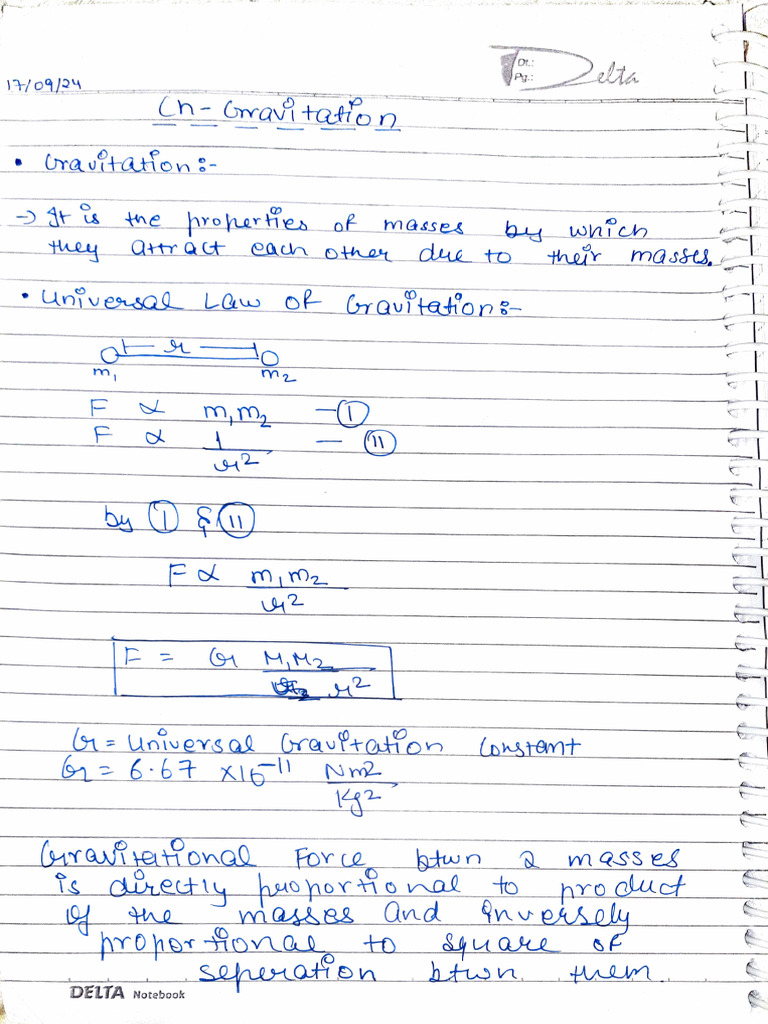 Dt.:
Pg.:
Delta
17/09/24
Ch - Gravitation
• Gravitation:-
→ It is the properties of masses by which
they attract each other due to their masses.
• Universal Law of Gravitation:-
r
m₁ m₂
F ∝ m₁m₂ — I
F ∝ 1/r² — II
by I & II
F ∝ m₁m₂/r²
F = G M₁M₂/r²
G = Universal Gravitation Constant
G = 6.67 × 10⁻¹¹ Nm2/Kg2
Gravitational Force btwn 2 masses
is directly proportional to product
of the masses and inversely
proportional to square of
seperation btwn them.
DELTA Notebook